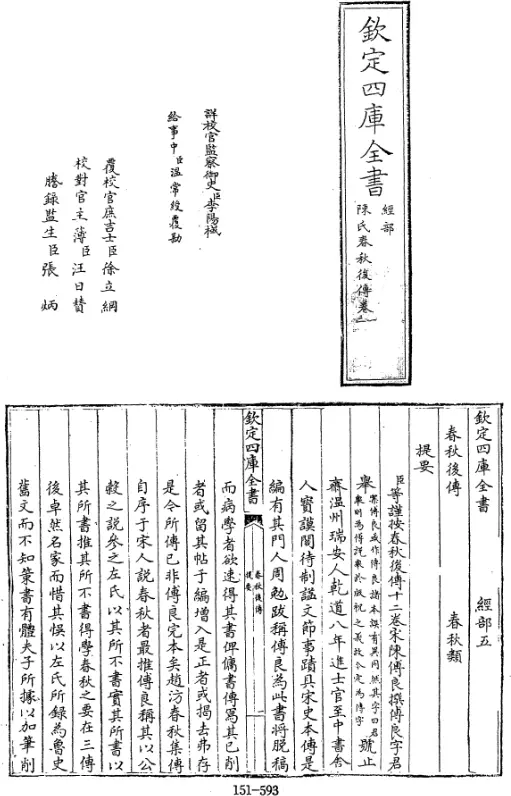 欽定四庫全書
經部
陳氏春秋後傳卷
詳校官監察御史臣李陽棫
給事中臣溫常綬覆勘
覆校官庶吉士臣徐立綱
校對官主簿臣汪日贊
謄錄監生臣張炳
欽定四庫全書 經部五
春秋後傳 春秋類
提要
臣等謹按春秋後傳十二卷宋陳傅良撰傅良字君
舉
號止
齋溫州瑞安人乾道八年進士官至中書舍
人寶謨閣待制諡文節事蹟具宋史本傳是
編有其門人周勉跋稱傅良為此書將脫稿
欽定四庫全書
春秋後傳
提要
一
而病學者欲速得其書俾傭書傳寫其已削
者或留其帖于編增入是正者或揭去弗存
是今所傳已非傅良完本矣趙汸春秋集傳
自序于宋人說春秋者最推傅良稱其以公
穀之說參之左氏以其所不書實其所書以
其所書推其所不書得學春秋之要在三傳
後卓然名家而惜其誤以左氏所錄為魯史
舊文而不知策書有體夫子所據以加筆削
151-593